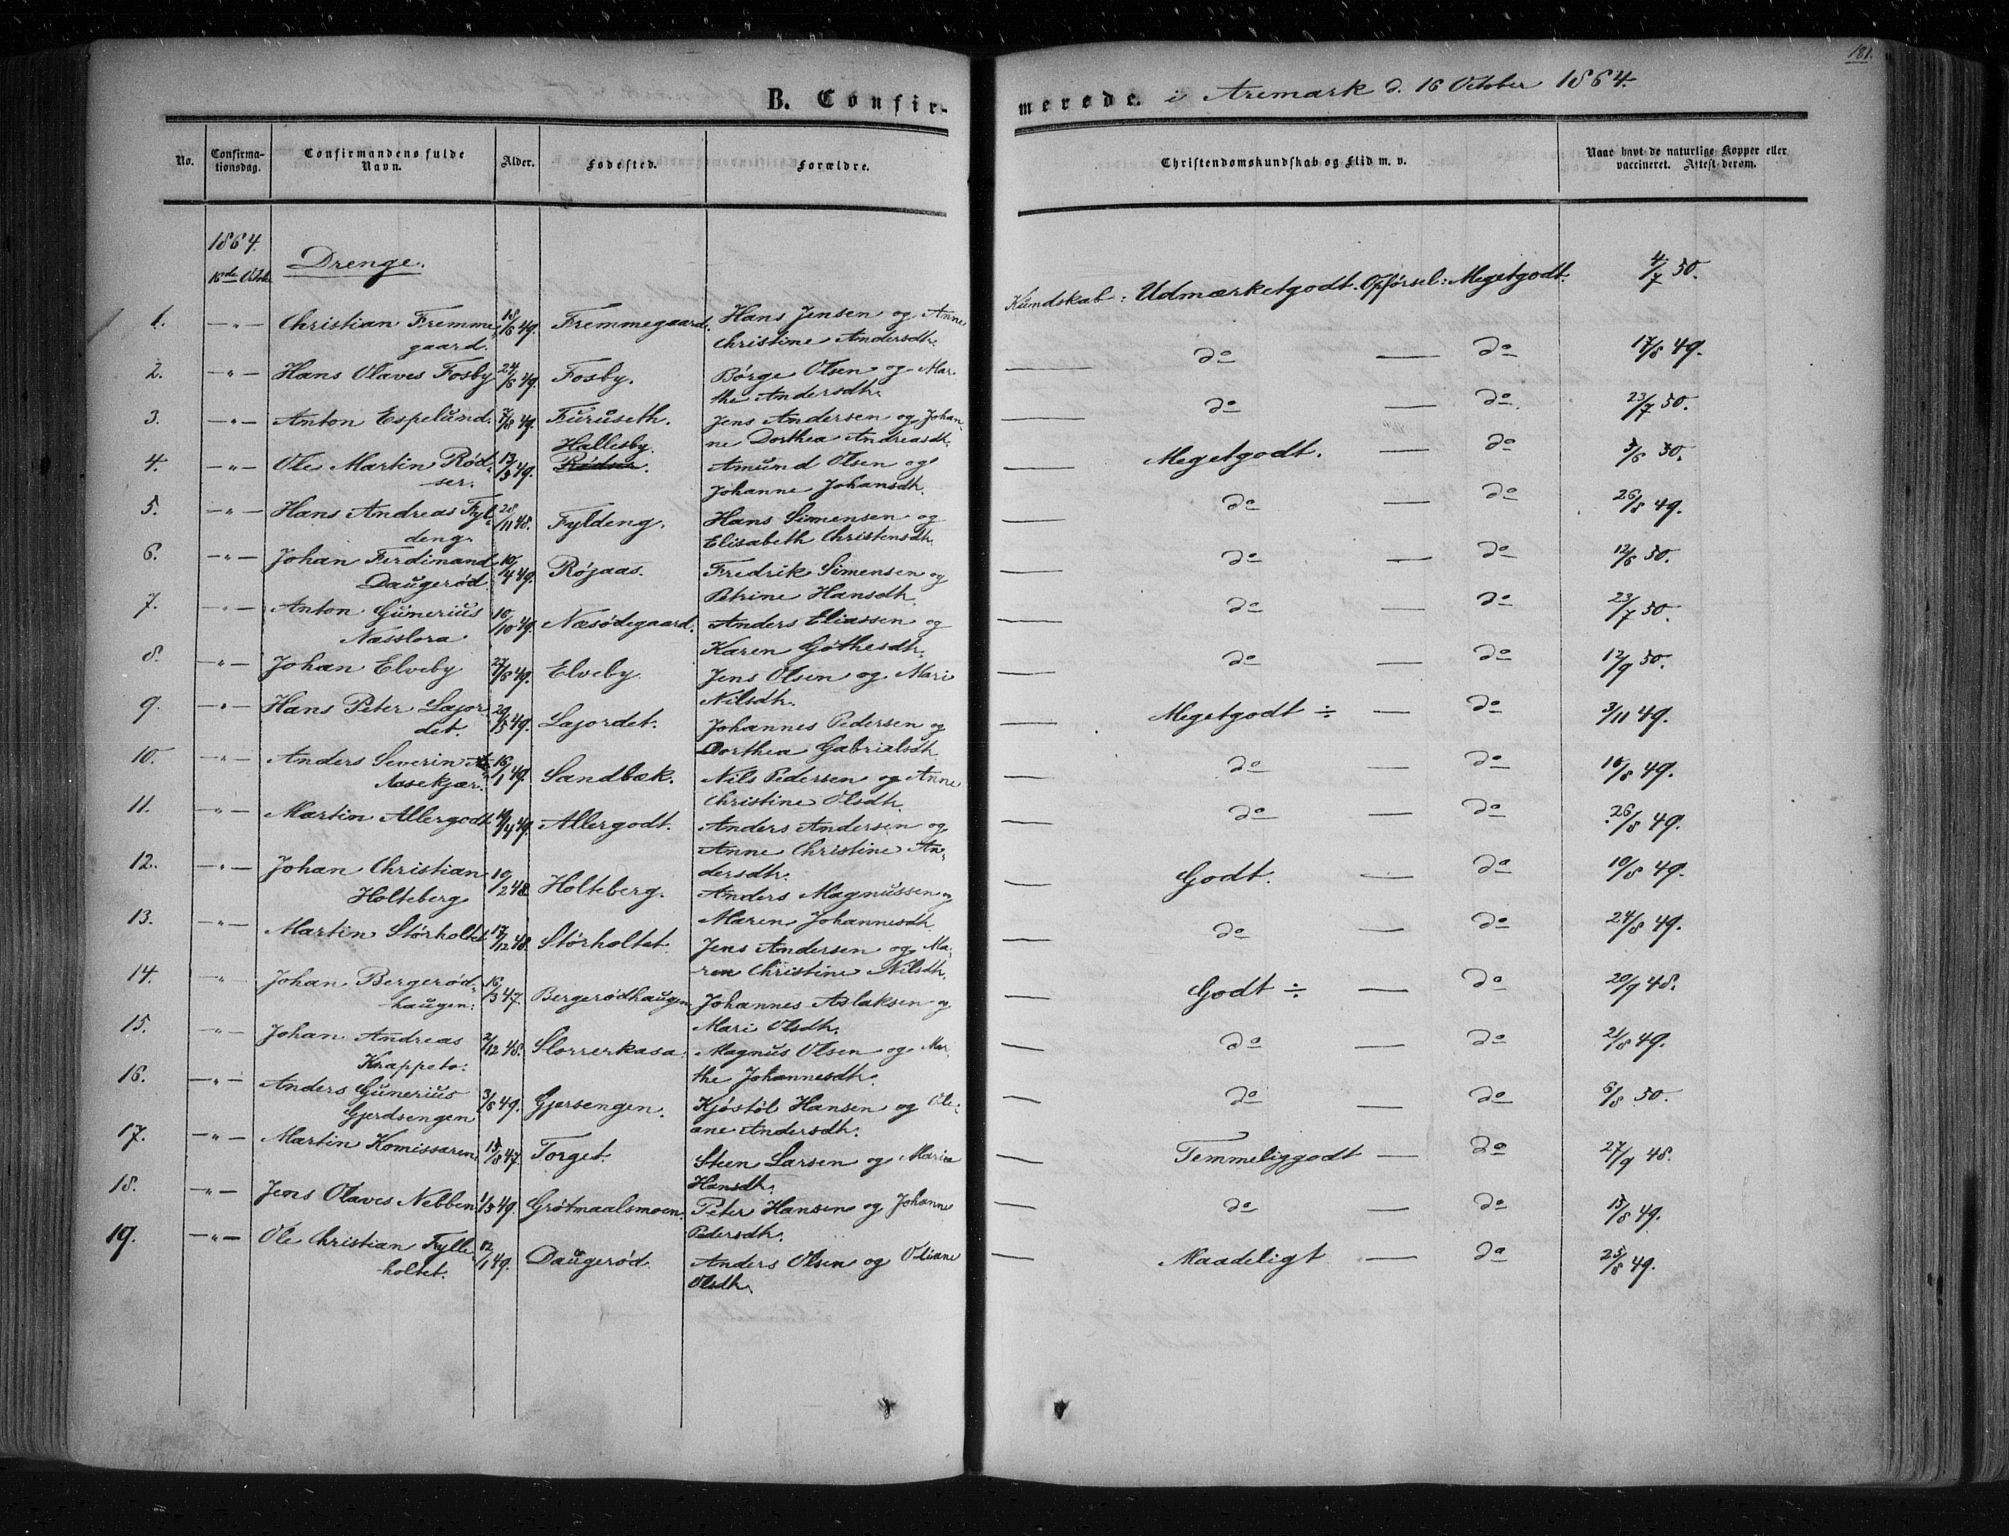 181.
B. Confirmerede. i Aremark d. 16 October 1864.
No. Confirmationsdag. Confirmandens fulde Navn. Alder. Fødested. Forældre. Christendomskundskab og Flid m. v. Naar havt de naturlige Kopper eller vaccineret. Attest derom.
1864.
16de Octob. Drenge.
1. —"— Christian Fremmegaard. 18/6 49. Fremmegaard. Hans Jensen og Anne Christine Andersdtr. Kundskab: Udmærketgodt. Opførsel: Megetgodt. 4/7 50.
2. —"— Hans Olaves Fosby 24/6 49. Fosby. Børge Olsen og Marthe Andersdtr. — do — do 17/8 49.
3. —"— Anton Espelund. 7/8 49. Furuseth. Jens Andersen og Johanne Dorthea Andreasdtr. — do — do 23/7 50.
4. —"— Ole Martin Rødser. 13/3 49. Hallesby. Rødser. Amund Olsen og Johanne Johansdtr. — Megetgodt. — do 5/6 50.
5. —"— Hans Andreas Fyldeng. 28/11 48. Fyldeng. Hans Simensen og Elisabeth Christensdtr. — do — do 26/8 49.
6. —"— Johan Ferdinand Daugerød. 10/4 49. Røjaas. Fredrik Simensen og Petrine Hansdtr. — do — do 12/6 50.
7. —"— Anton Gunerius Næsslora. 16/10 49. Næsødegaard. Anders Eliassen og Karen Gøthesdtr. — do — do 23/7 50.
8. —"— Johan Elveby 27/6 49. Elveby. Jens Olsen og Mari Nilsdtr. — do — do 12/9 50.
9. —"— Hans Peter Lajordet. 29/5 49. Lajordet. Johannes Pedersen og Dorthea Gabrielsdtr. — Megetgodt ÷ — do 3/11 49.
10. —"— Anders Severin Aasekjær. 16/1 49. Sandbæk. Nils Pedersen og Anne Christine Olsdtr. — do — do 10/8 49.
11. —"— Martin Allergodt. 19/4 49. Allergodt. Anders Andersen og Anne Christine Andersdtr. — do — do 26/8 49.
12. —"— Johan Christian Holteberg 10/2 48. Holteberg. Anders Magnussen og Maren Johannesdtr. — Godt. — do 10/8 49.
13. —"— Martin Storholtet. 17/12 48. Storholtet. Jens Andersen og Maren Christine Nilsdtr. — do — do 24/8 49.
14. —"— Johan Bergerødhaugen. 16/3 47. Bergerødhaugen. Johannes Aslaksen og Mari Olsdtr. — Godt ÷ — do 20/9 48.
15. —"— Johan Andreas Krappeto. 2/12 48. Slorrerkasa. Magnus Olsen og Marthe Johannesdtr. — do — do 21/8 49.
16. —"— Anders Gunerius Gjerdsengen 3/6 49. Gjersengen. Kjøstøl Hansen og Oleane Andersdtr. — do — do 6/8 50.
17. —"— Martin Komissaren. 15/8 47. Torget. Steen Larsen og Maria Hansdtr. — Temmeliggodt — do 27/9 48.
18. —"— Jens Olaves Nebben 1/3 49. Grøtmaalsmoen. Peter Hansen og Johanne Pedersdtr. — do — do 15/8 49.
19. —"— Ole Christian Fylleholtet. 12/1 49. Daugerød Anders Olsen og Oliane Olsdtr. — Maadeligt — do 25/8 49.